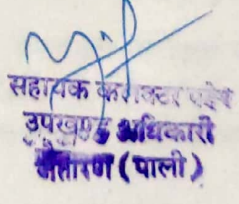 सहायक कलक्टर एवं
उपखण्ड अधिकारी
जैतारण (पाली)